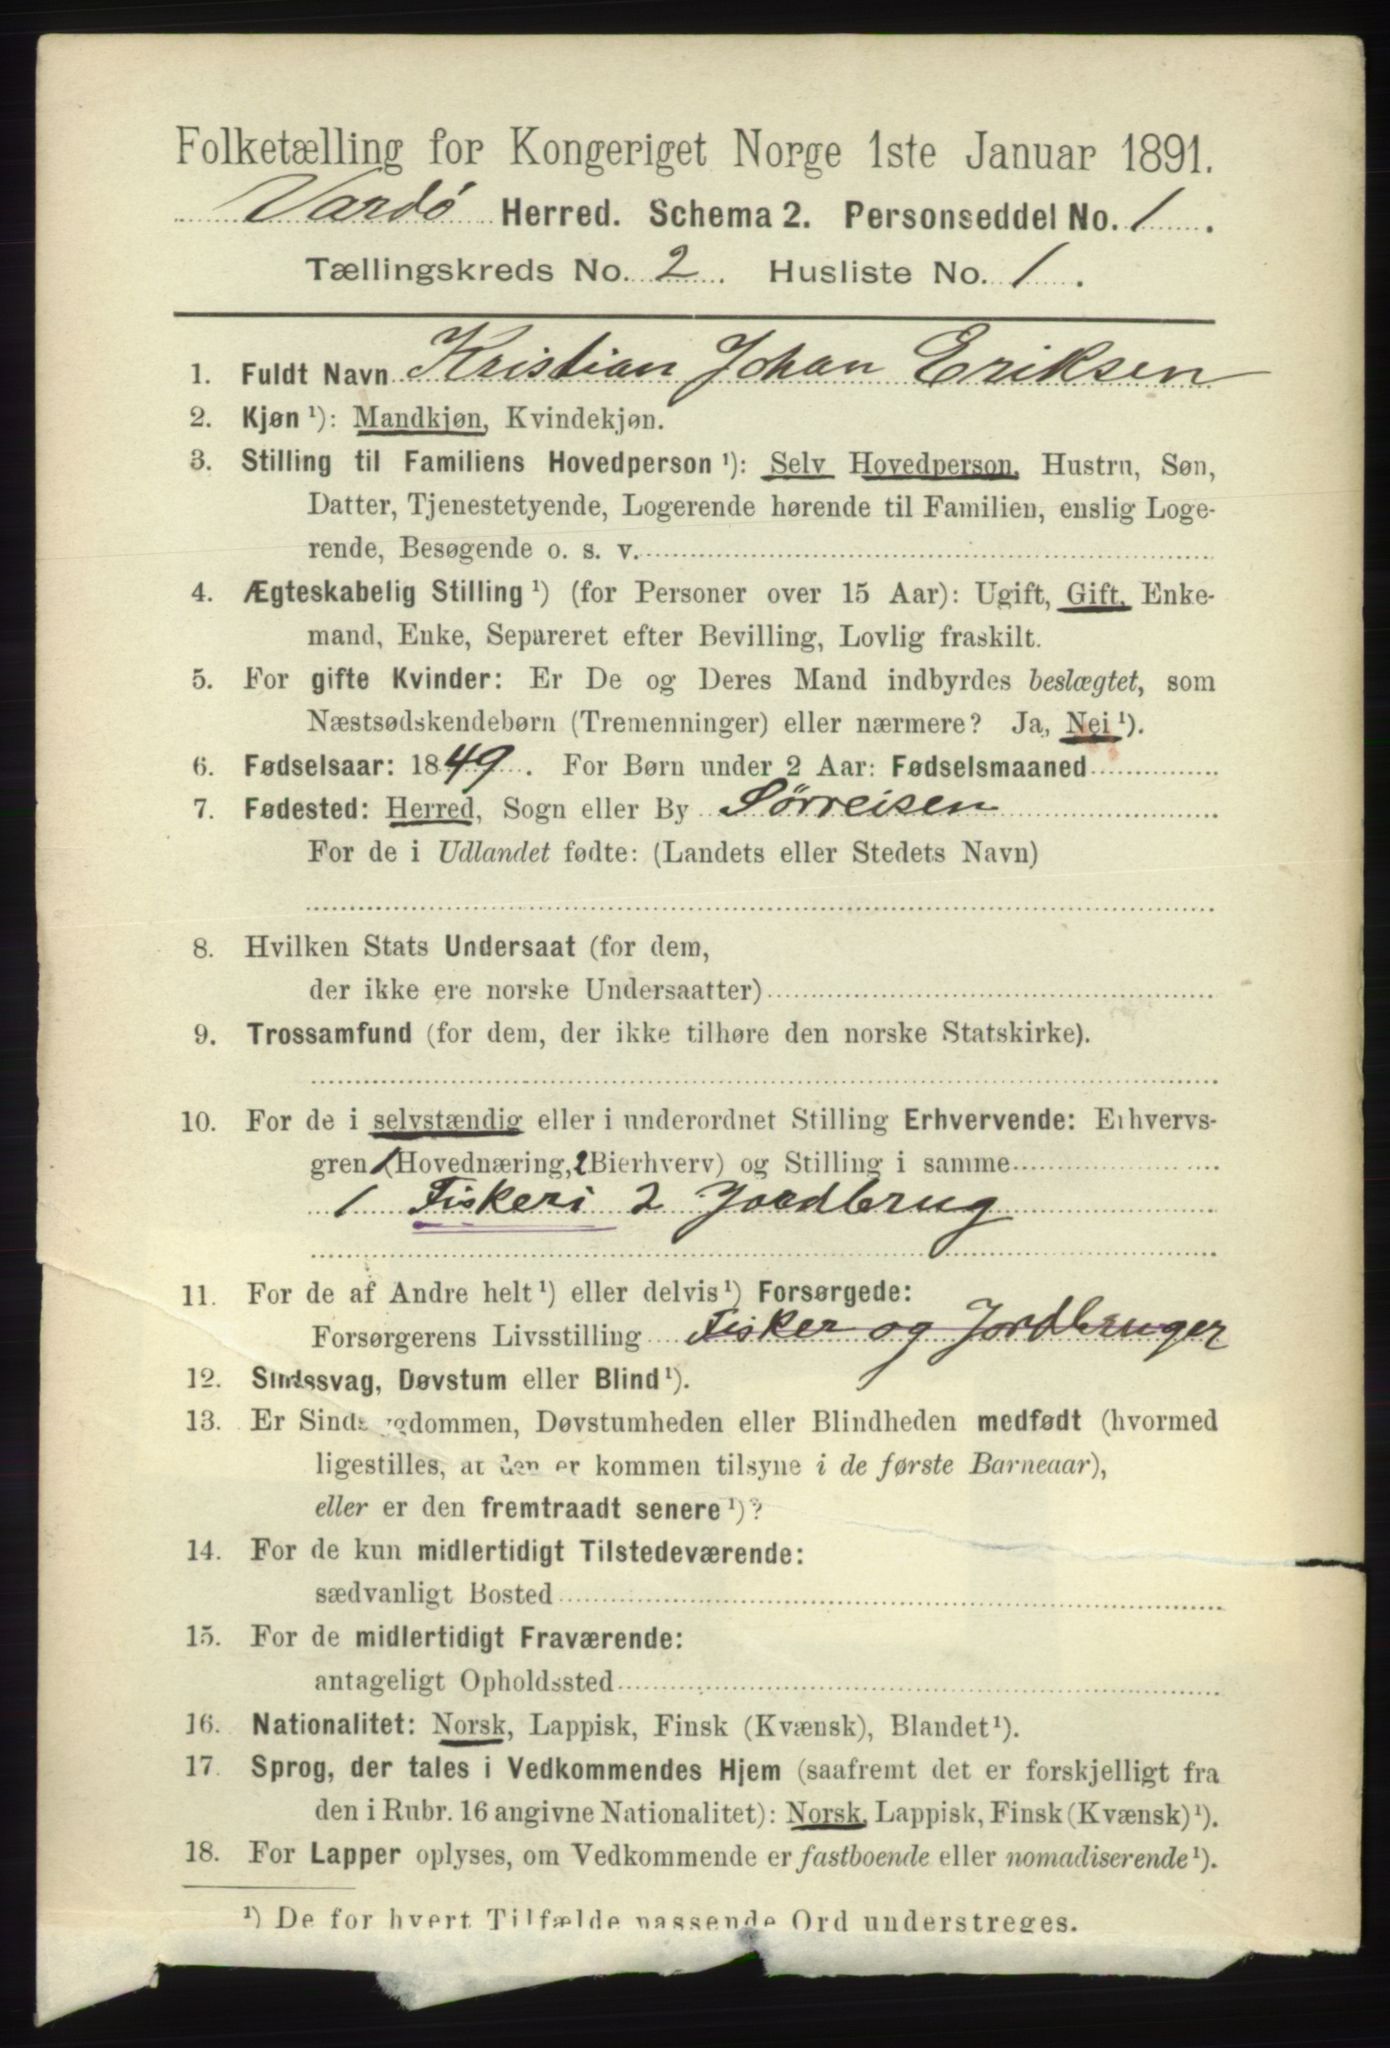 Folketælling for Kongeriget Norge 1ste Januar 1891.
Vardö Herred. Schema 2. Personseddel No. 1.
Tællingskreds No. 2. Husliste No. 1.
1. Fuldt Navn Kristian Johan Eriksen
2. Kjøn ¹): Mandkjøn, Kvindekjøn.
3. Stilling til Familiens Hovedperson ¹): Selv Hovedperson, Hustru, Søn,
Datter, Tjenestetyende, Logerende hørende til Familien, enslig Loge-
rende, Besøgende o. s. v.
4. Ægteskabelig Stilling ¹) (for Personer over 15 Aar): Ugift, Gift, Enke-
mand, Enke, Separeret efter Bevilling, Lovlig fraskilt.
5. For gifte Kvinder: Er De og Deres Mand indbyrdes beslægtet, som
Næstsødskendebørn (Tremenninger) eller nærmere? Ja, Nei ¹).
6. Fødselsaar: 1849. For Børn under 2 Aar: Fødselsmaaned
7. Fødested: Herred, Sogn eller By Sörreisen
For de i Udlandet fødte: (Landets eller Stedets Navn)
8. Hvilken Stats Undersaat (for dem,
der ikke ere norske Undersaatter)
9. Trossamfund (for dem, der ikke tilhøre den norske Statskirke).
10. For de i selvstændig eller i underordnet Stilling Erhvervende: Erhvervs-
gren 1 (Hovednæring, 2 Bierhverv) og Stilling i samme
1 Fiskeri 2 Jordbrug
11. For de af Andre helt ¹) eller delvis ¹) Forsørgede:
Forsørgerens Livsstilling Fisker og Jordbruger
12. Sindssvag, Døvstum eller Blind ¹).
13. Er Sindssygdommen, Døvstumheden eller Blindheden medfødt (hvormed
ligestilles, at den er kommen tilsyne i de første Barneaar),
eller er den fremtraadt senere ¹)?
14. For de kun midlertidigt Tilstedeværende:
sædvanligt Bosted
15. For de midlertidigt Fraværende:
antageligt Opholdssted
16. Nationalitet: Norsk, Lappisk, Finsk (Kvænsk), Blandet ¹).
17. Sprog, der tales i Vedkommendes Hjem (saafremt det er forskjelligt fra
den i Rubr. 16 angivne Nationalitet): Norsk, Lappisk, Finsk (Kvænsk) ¹).
18. For Lapper oplyses, om Vedkommende er fastboende eller nomadiserende ¹).
¹) De for hvert Tilfælde passende Ord understreges.